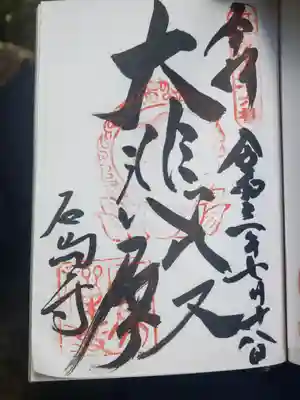 奉拝
令和三年七月十八日
大悲殿
石山寺